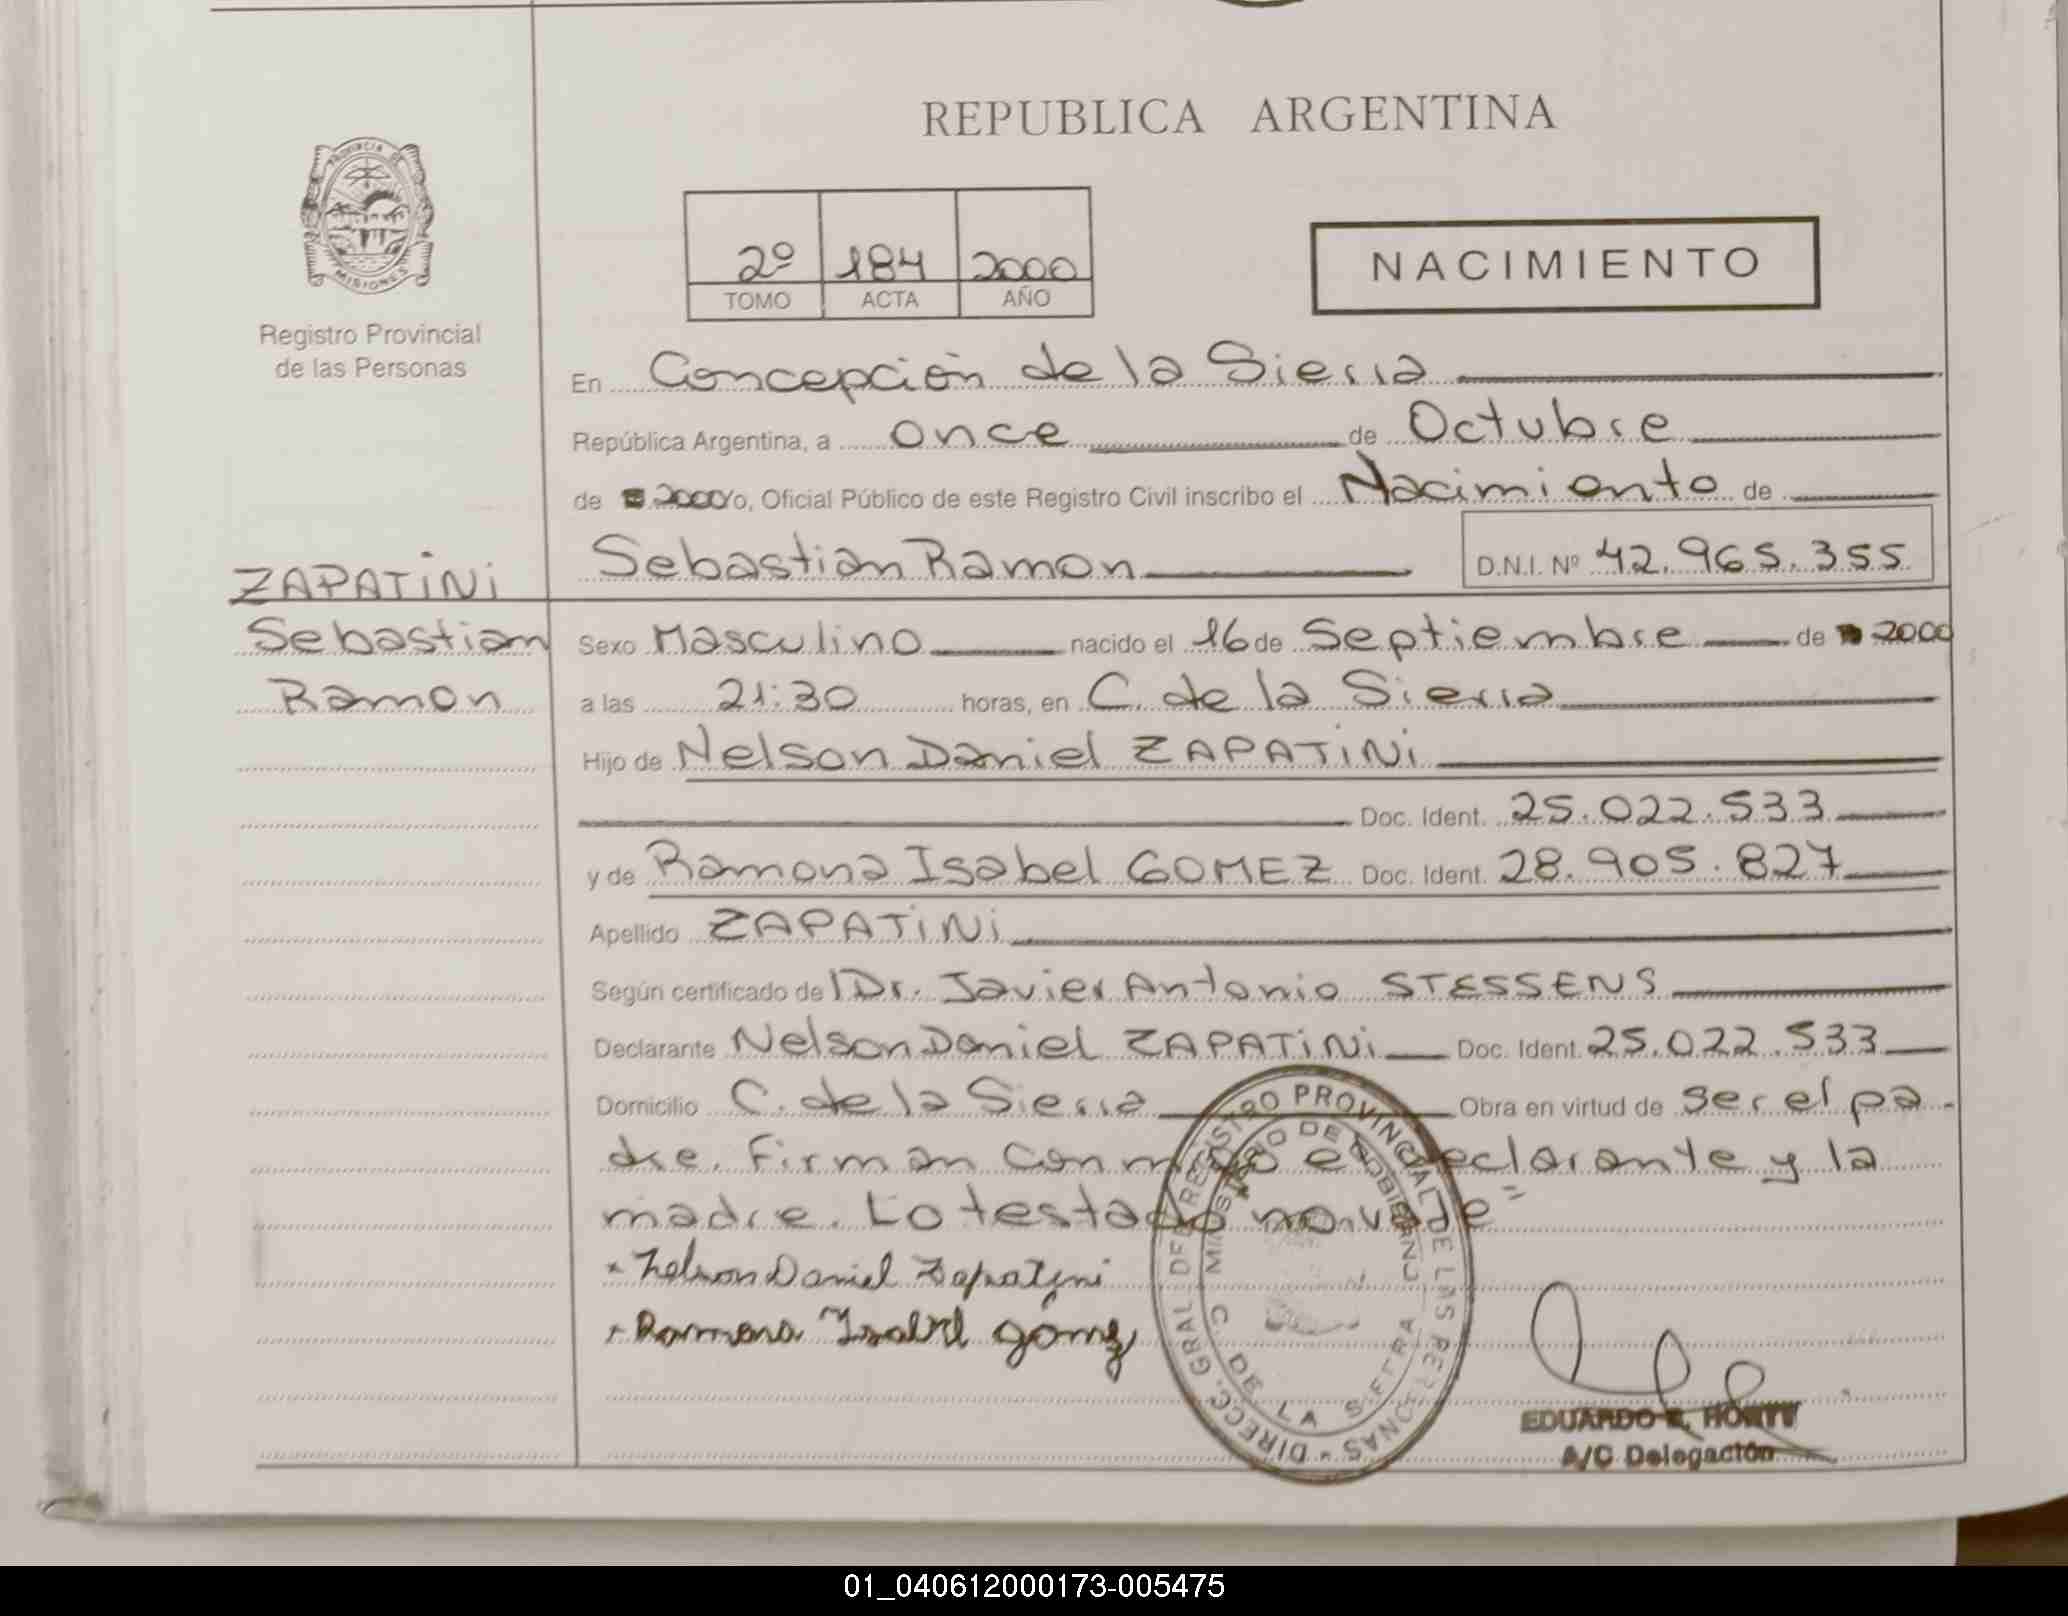 REPUBLICA ARGENTINA
PROVINCIA DE
MISIONES
Registro Provincial
de las Personas
2º 184 2000
TOMO ACTA AÑO
NACIMIENTO
En Concepción de la Sierra
República Argentina, a once de Octubre
de 2000 yo, Oficial Público de este Registro Civil inscribo el Nacimiento de
Sebastian Ramon D.N.I. Nº 42.965.355
ZAPATiNi
Sebastian
Ramon
Sexo Masculino nacido el 16 de Septiembre de 2000
a las 21:30 horas, en C. de la Sierra
Hijo de Nelson Daniel ZAPATiNi
Doc. Ident. 25.022.533
y de Ramona Isabel GOMEZ Doc. Ident. 28.905.827
Apellido ZAPATiNi
Según certificado de l Dr. Javier Antonio STESSENS
Declarante Nelson Daniel ZAPATiNi Doc. Ident. 25.022.533
Domicilio C. de la Sierra Obra en virtud de ser el pa-
dre. Firman conmigo el declarante y la
madre. Lo testado no vale"
Nelson Daniel Zapatini
Ramona Isabel gómez
DIRECC. GRAL DEL REGISTRO PROVINCIAL DE LAS PERSONAS
MINISTERIO DE GOBIERNO
C DE LA SIERRA
EDUARDO E.
A/C Delegación
01_040612000173-005475